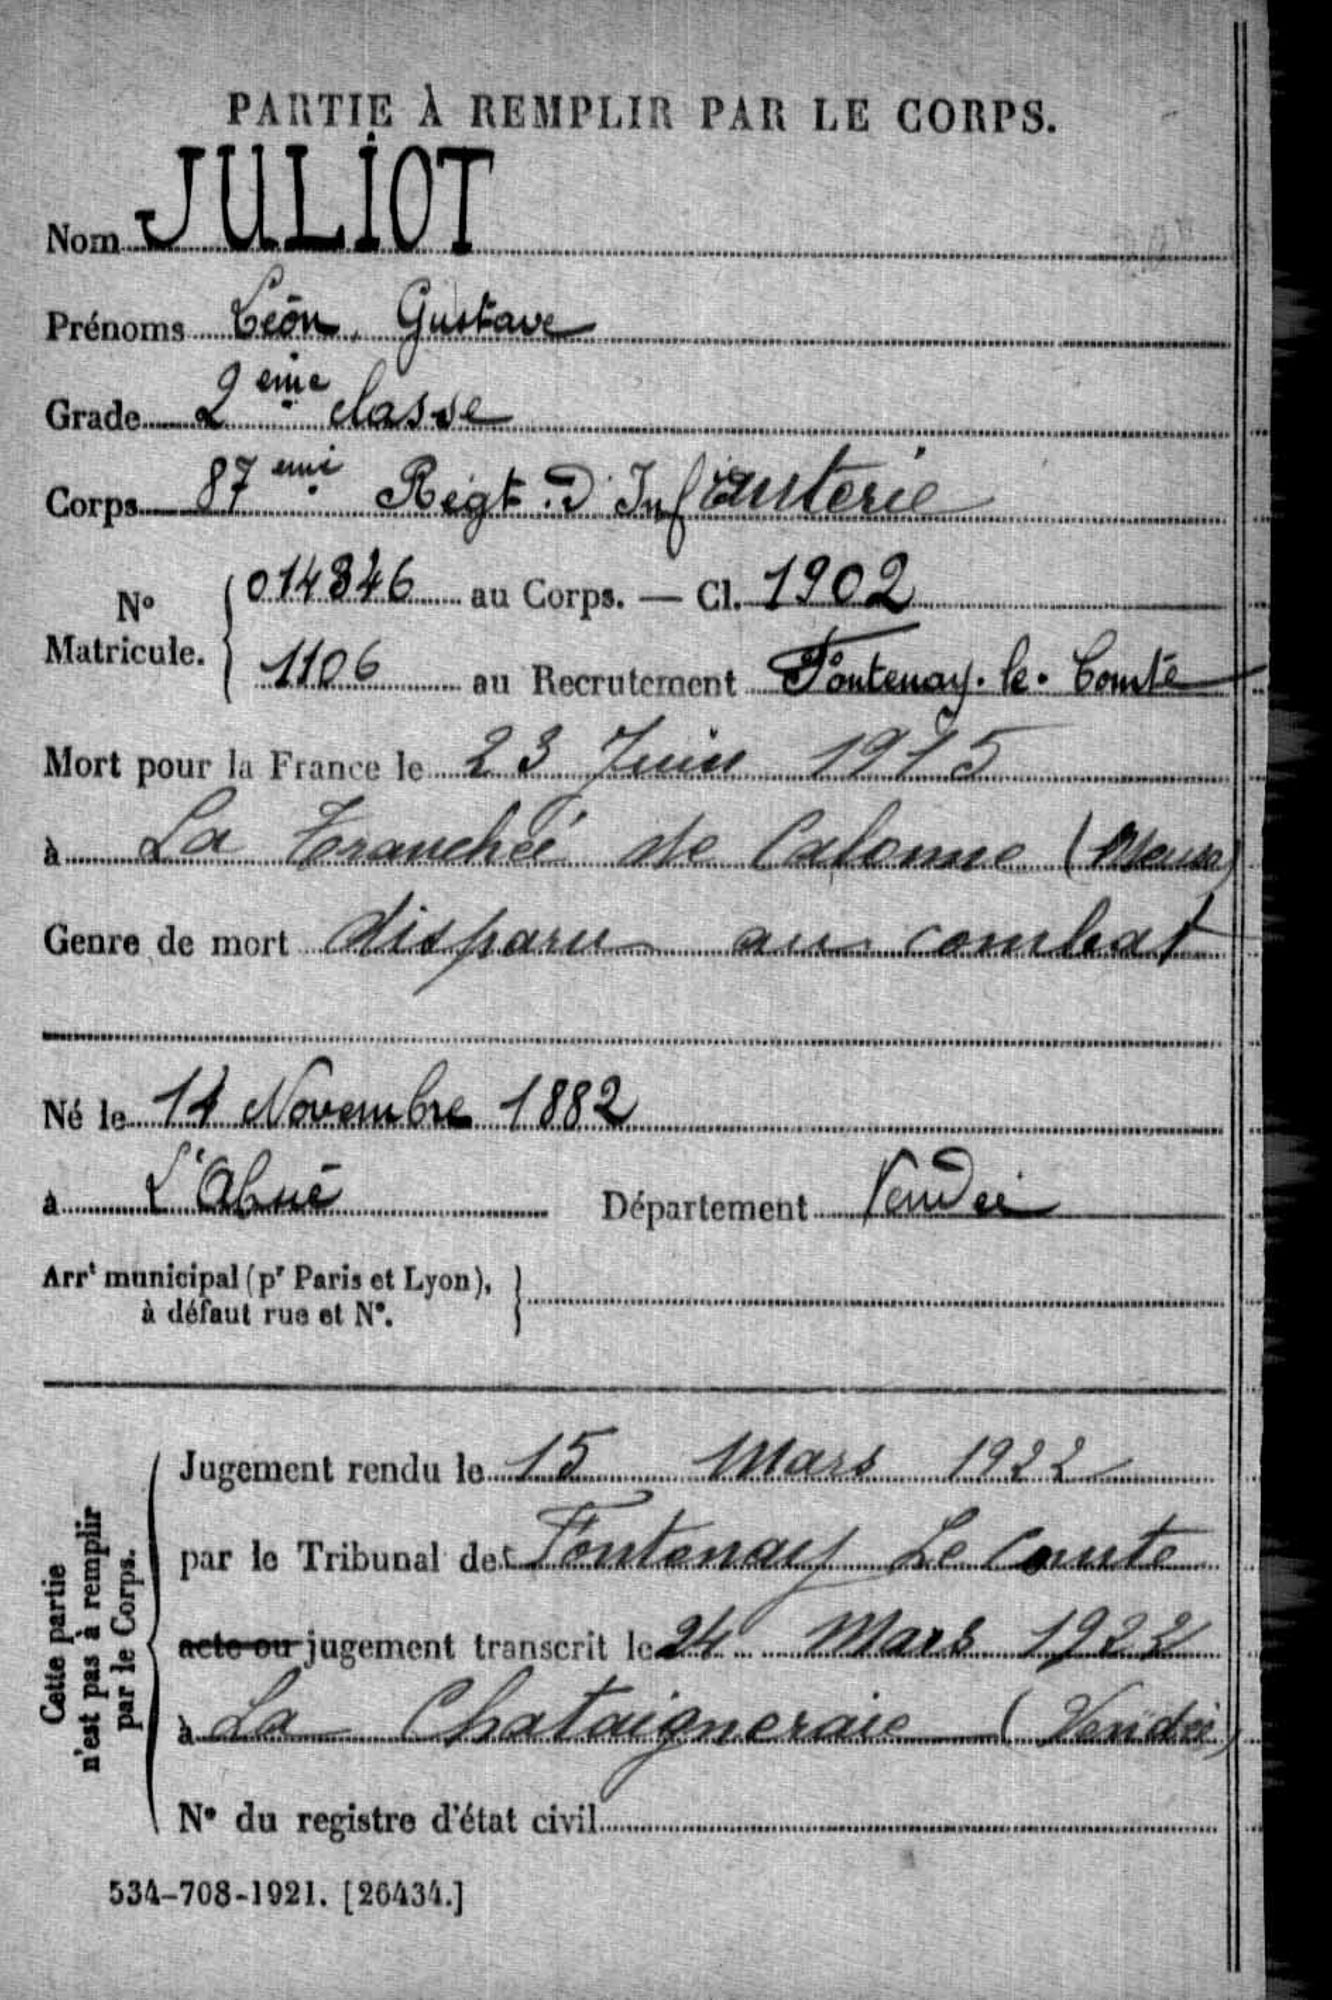 PARTIE À REMPLIR PAR LE CORPS.
Nom JULIOT
Prénoms Léon, Gustave
Grade 2 eme classe
Corps 87 emi Régt. D'Infanterie
No Matricule. { 014846 au Corps. — Cl. 1902
1106 au Recrutement Fontenay. le. Comte
Mort pour la France le 23 Juin 1915
à La Tranchée de Calonne (Meuse)
Genre de mort disparu au combat
Né le 14 Novembre 1882
à Département Vendée
Arrt municipal (pr Paris et Lyon), à défaut rue et No. }
Cette partie n'est pas à remplir par le Corps.
Jugement rendu le 15 Mars 1922
par le Tribunal de Fontenay Le Comte
acte ou jugement transcrit le 24 Mars 1922
à La Chataigneraie (Vendée)
No du registre d'état civil
534-708-1921. [26434.]